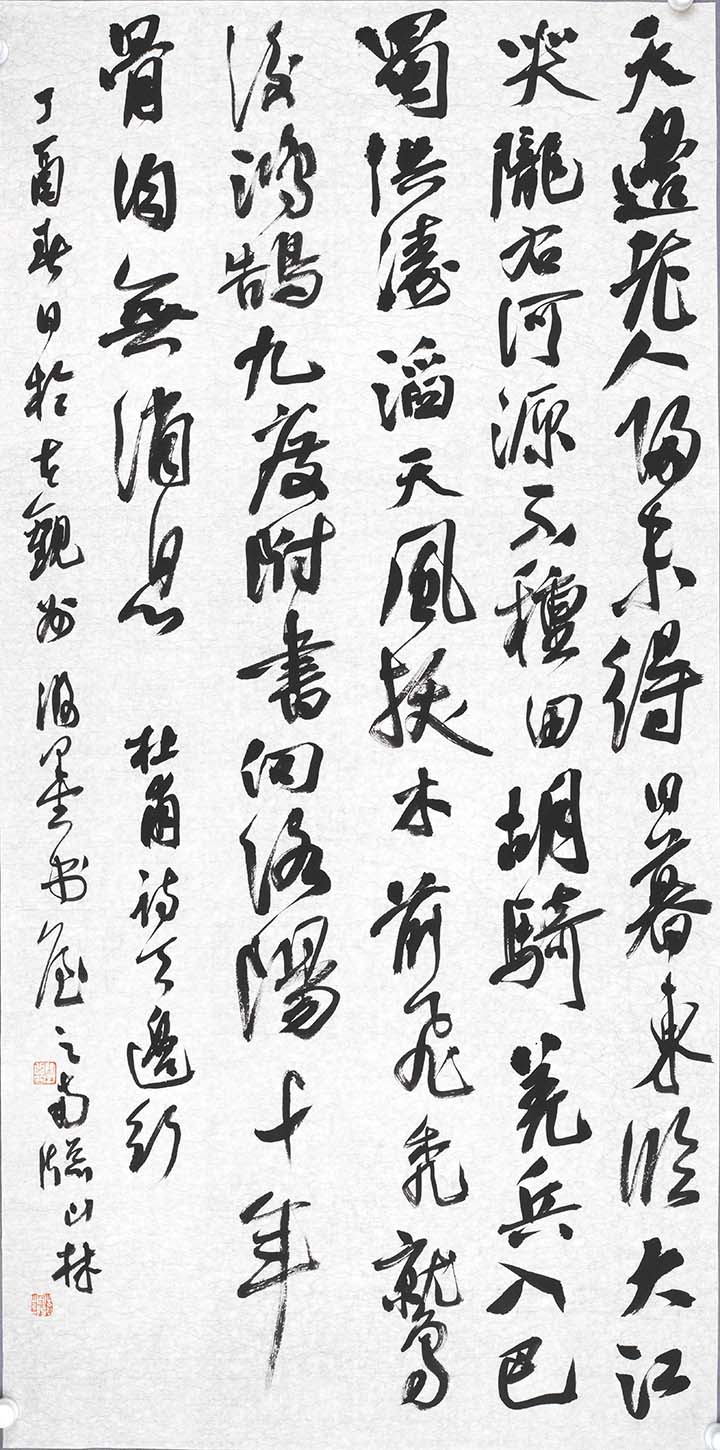 天邊老人歸未得日暮東臨大江
哭隴右河源不種田胡騎羌兵入巴
蜀洪濤滔天風拔木前飛禿鶖
後鴻鵠九度附書向洛陽十年
骨肉無消息 杜甫诗天邊行
丁酉春日於古觀州墨书屋之南牖山林